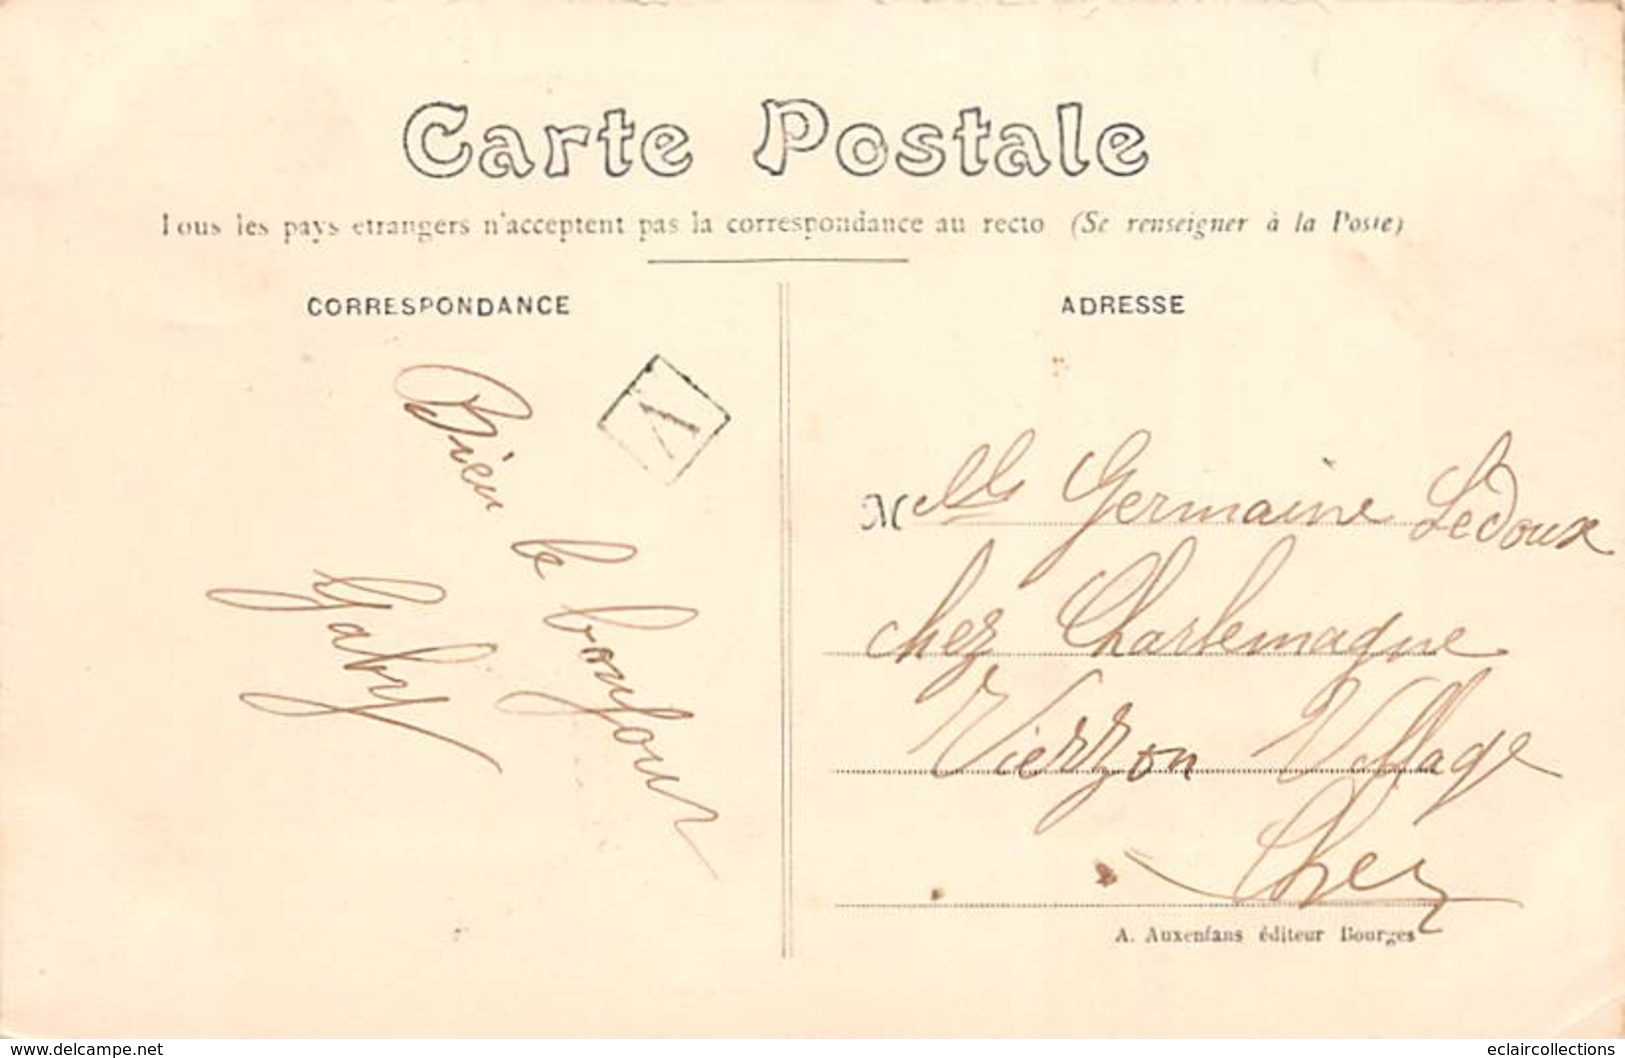 Carte Postale
Tous les pays étrangers n'acceptent pas la correspondance au recto (Se renseigner à la Poste)
CORRESPONDANCE
A
Bien
le bonjour
Gaby
ADRESSE
Melle Germaine Ledoux
chez Charlemagne
Vierzon Village
Cher
A. Auxenfans éditeur Bourges
www.delcampe.net
eclaircollections